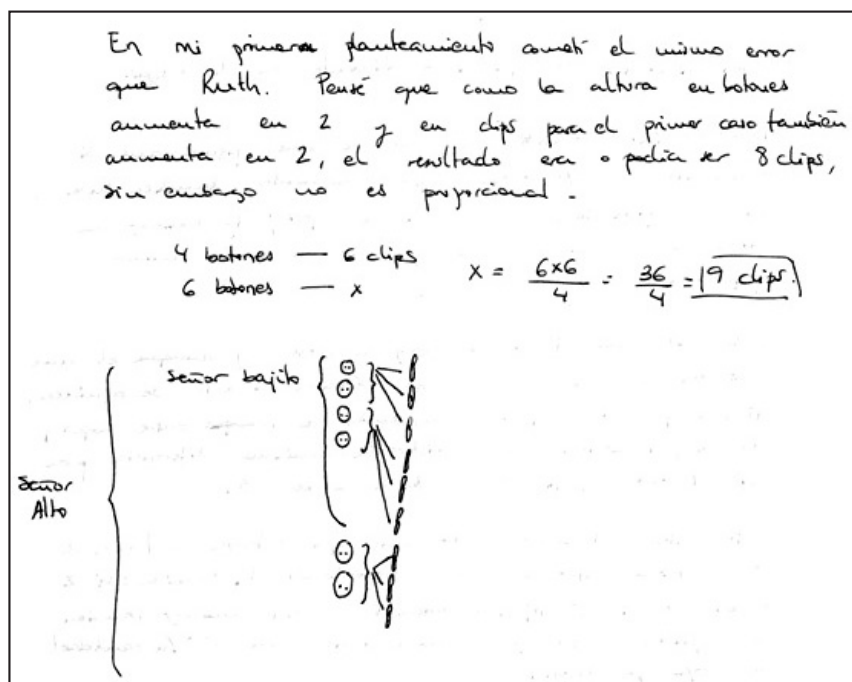 En mi primera planteamiento cometí el mismo error
que Ruth. Pensé que como la altura en botones
aumenta en 2 y en clips para el primer caso también
aumenta en 2, el resultado era o podía ser 8 clips,
sin embargo no es proporcional.
4 botones — 6 clips
6 botones — x
x = 6x6/4 = 36/4 = 9 clips.
Señor bajito
Señor
Alto